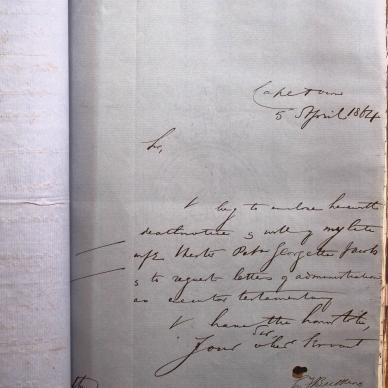 Cape Town
5 April 1864
Sir,
I beg to enclose herewith
deathnotice & will of my late
wife Hester Georgetta Jacobs
& to request letters of administration
as executor testamentary
I have the honor to be,
Sir
Your obdt Servant